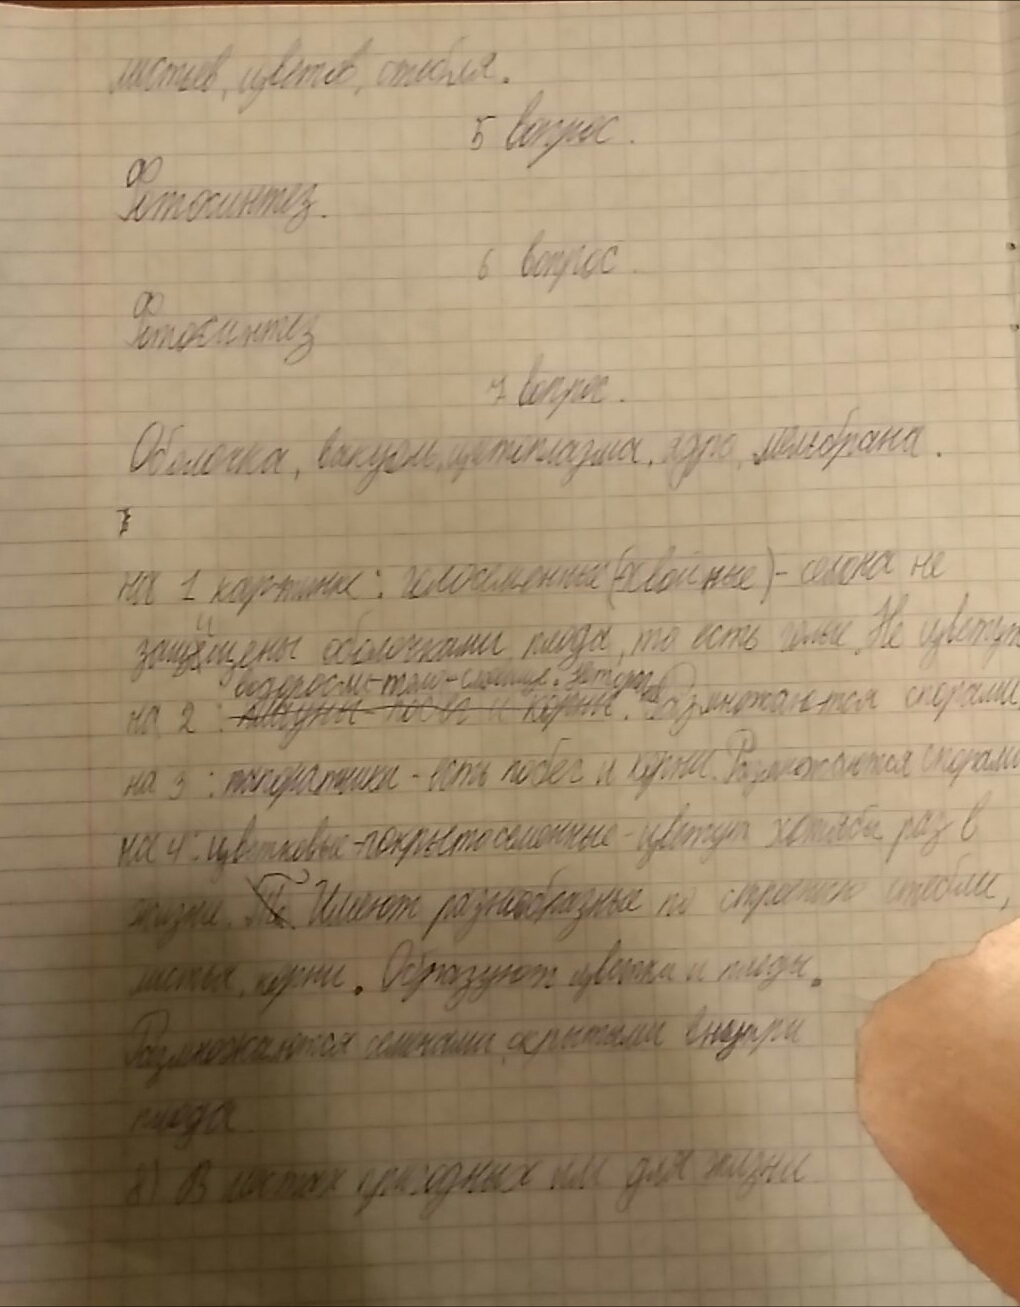 листьев, цветов, стебля.
5 вопрос.
Фотосинтез.
6 вопрос.
Фотосинтез
7 вопрос.
Оболочка, вакуоль, цитоплазма, ядро, мембрана.
на 1 картинке: голосеменные (хвойные) - семена не
защищены оболочками плода, то есть голые. Не цветут
водоросли - тело - слоевище.
на 2: Размножаются спорами
на 3: папоратники - есть побег и корни. Размножаются спорами
на 4: цветковые - покрытосеменные - цветут хотябы раз в
жизни. Имеют разнообразные по строению стебли,
листья, корни. Образуют цветки и плоды.
Размножаются семенами, скрытыми внутри
плода
8) В местах пригодных им для жизни